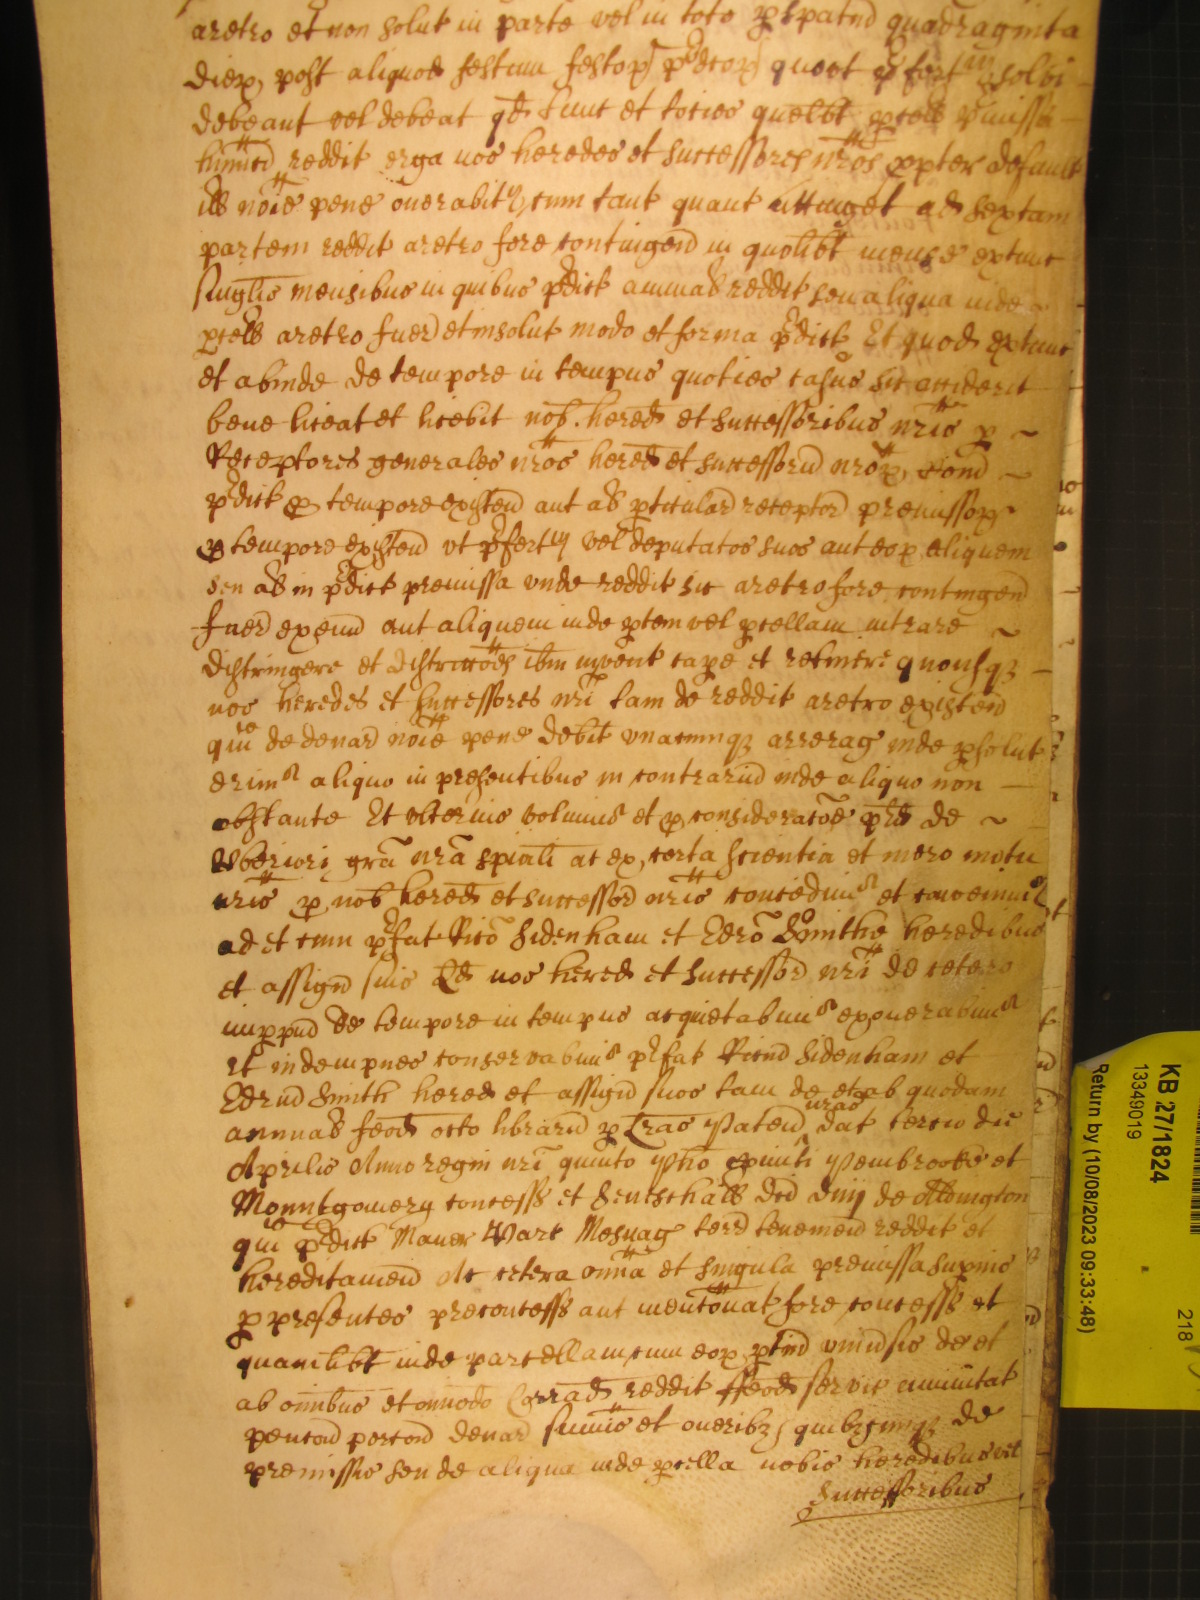 aretro et non solut in parte vel in toto p spatnd quadraginta
dierz post aliquod festum festorz pdcorz quoot pfert in solvi
debeant vel debeat qd tunc et tocies quelbt pcell pmissa
humd reddit erga nos heredes et Successores nros ppter defalt
ill noie pene onerabitr cum tant quant attinget ad septam
partem reddit aretro fore contingend in quolibt mense extunc
singlis mensibus in quibus pdict annual reddit seu aliqua inde
pcell aretro fuerd et insolut modo et forma pdict Et quod extunc
et abinde de tempore in tempus quoties casus sic acciderit
bene liceat et licebit nob hered et Successoribus nris p
Receptores generales nros hered et Successord nrorz Comd
pdict p tempore existend aut al pticulard receptord premissorz
p tempore existend vt pfertur vel deputatos suos aut eorz aliquem
seu al in pdict premissa vnde reddit sic aretro fore contingend
fuerd exeund aut aliquem inde ptem vel pcellam intrare
distringere et districcoes ibm invent cape et retinere quousqz
nos heredes et Successores nri tam de reddit aretro existend
qui de denard noie pene debit vnacumqz arrerag inde psolut
erimus aliquo in presentibus in contrariu inde aliquo non
obstante Et vlterius volumus et p consideracoe pd de
Vberiori gra nra spiali ac ex certa scientia et mero motu
nris p nob hered et Successord nris concedimus et convenimus
ad et cum pfat Rico Sidenham et Edro Smithe heredibus
et assignd suis Qd nos hered et Successord nri de cetero
imppud de tempore in tempus acquietabimus exonerabimus
et indempnes conservabimus pfat Ricud Sidenham et
Edrud Smith hered et assignd suos tam de et ab quodam
annual feod octo librard p Lras Patend nras dat tercio die
Aprilis Anno regni nri quinto Pho Comiti Pembrooke et
Mountgomery concess et Seneschall dcd dnij de Abington
qui pdict Maner Parc Mesuag terrd tenemend reddit et
hereditamend Ac cetera omia et singula premissa supius
p presentes preconcess aut mencionat fore concess et
quamlibt inde parcellam cum eorz ptind vniudsis de et
ab omibus et omodo Corrad reddit ffeod servic annuitat
pencond porcond denard sumis et oneribz quibzcumqz de
premissis seu de aliqua inde pcella nobis heredibus vel
Successoribus
KB 27/1824
13349019
Return by (10/08/2023 09:33:48)
218